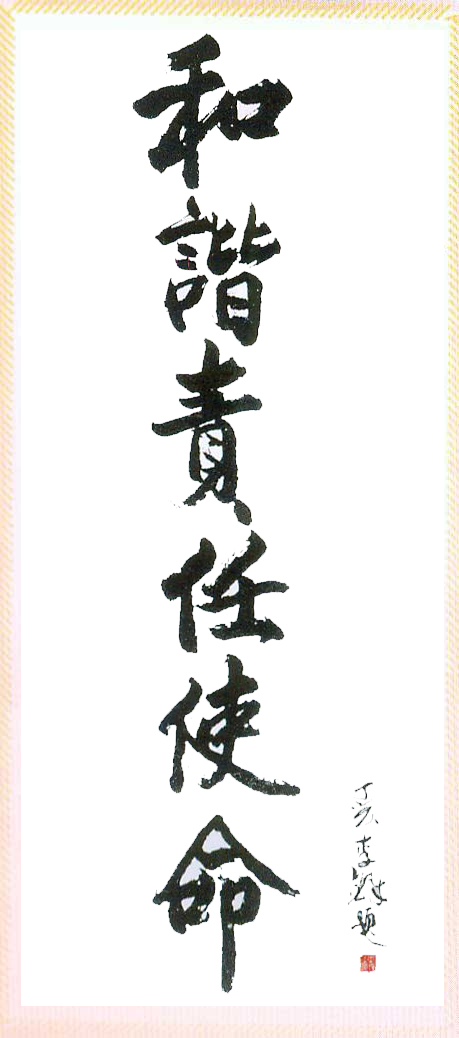 和諧責任使命
丁亥李鐸題